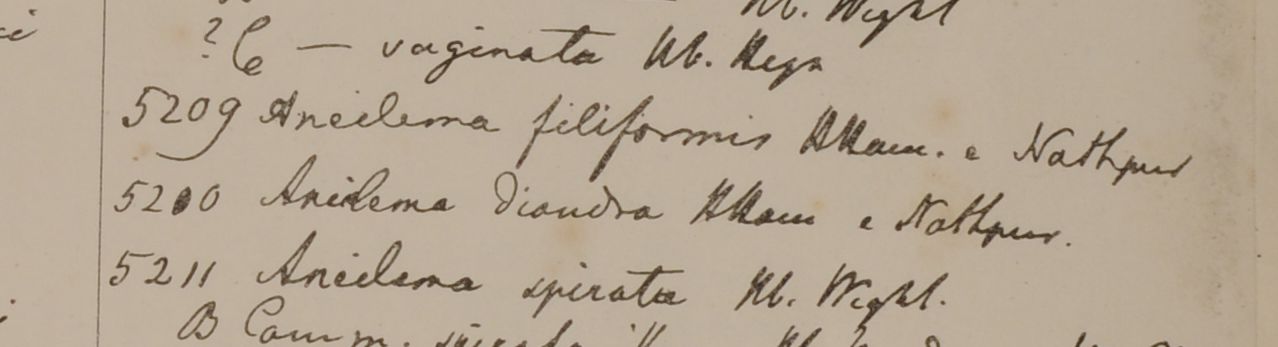 Hb. Wight
? C — vaginata Hb. Heyn
5209 Aneilema filiformis HHam. e Nathpur
5210 Aneilema diandra HHam e Nathpur.
5211 Aneilema spirata Hb. Wight.
B Comm. spirata